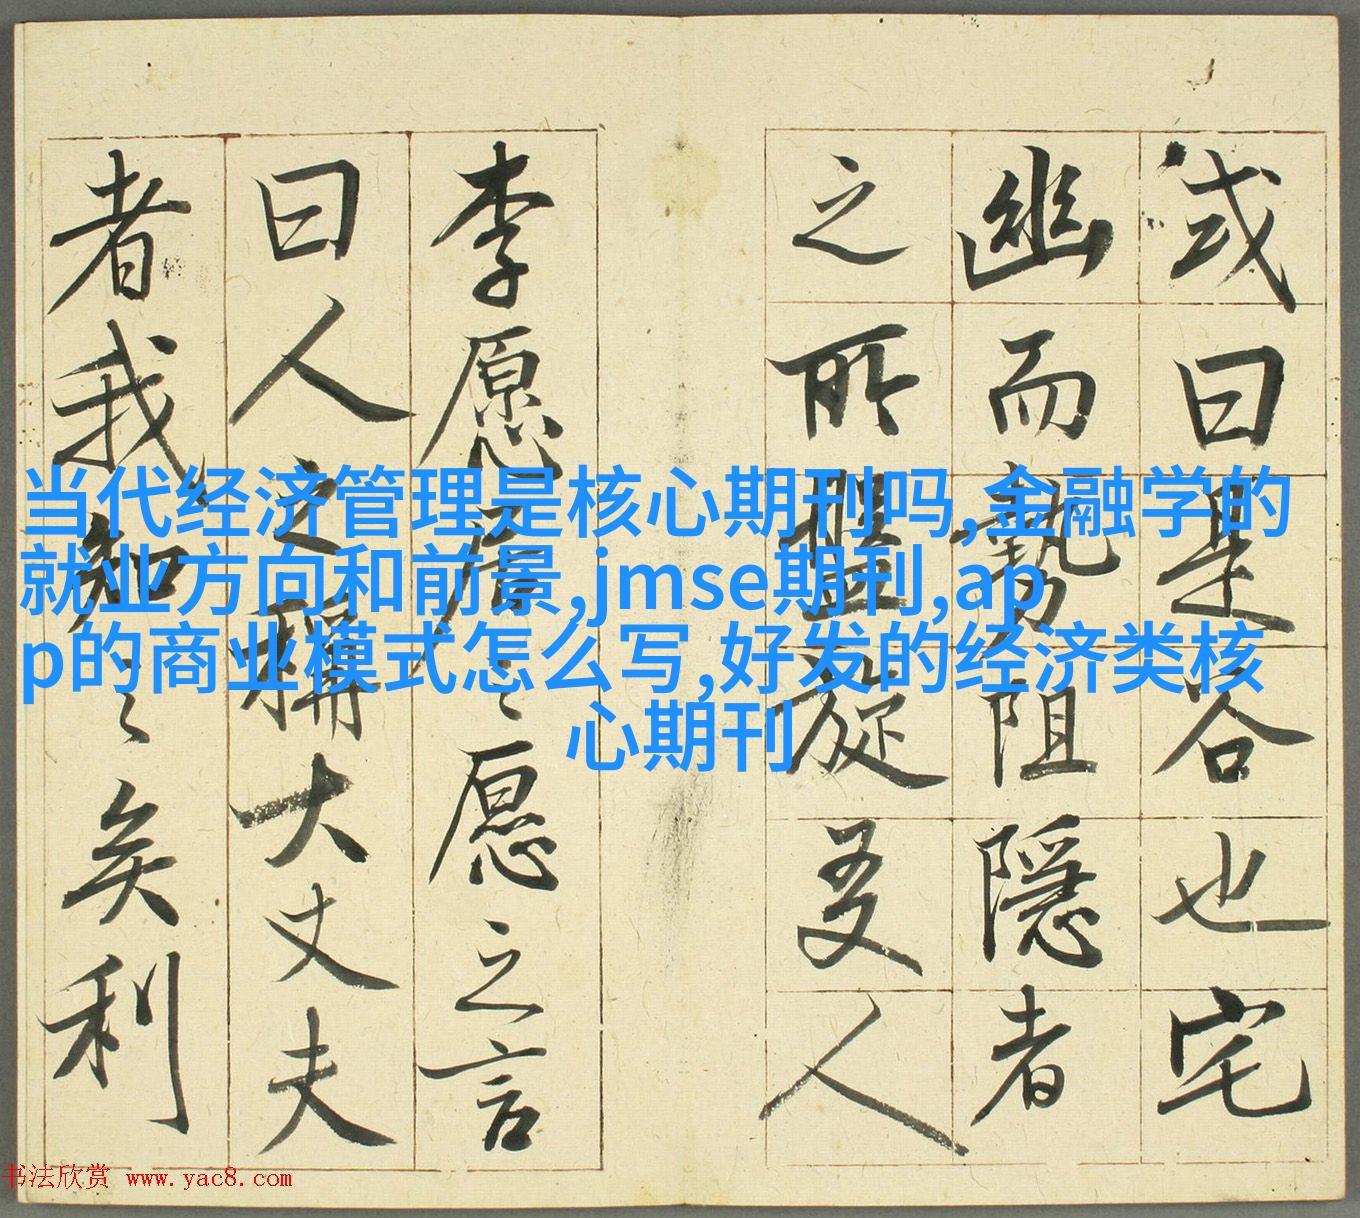 或曰是谷也宅
幽而勢阻隱者
之所盤旋友人
李愿居之愿之言
曰人之稱大丈夫
者我知之矣利
当代经济管理是核心期刊吗,金融学的
就业方向和前景,jmse期刊,ap
p的商业模式怎么写,好发的经济类核
心期刊
书法欣赏 www.yac8.com